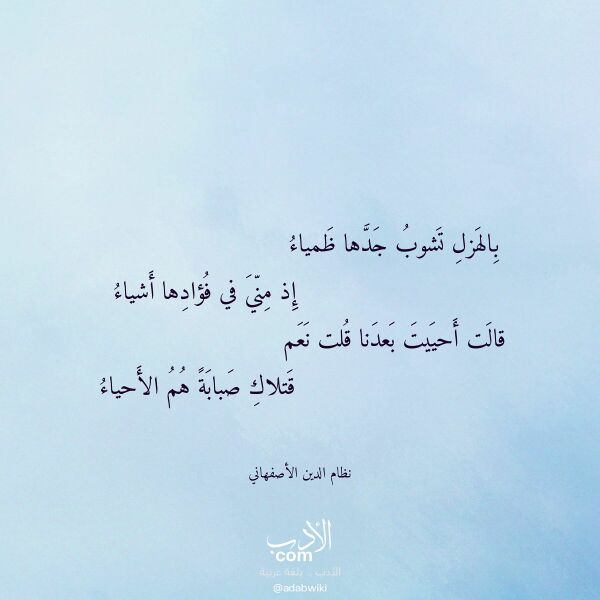 بِالهَزلِ تَشوبُ جَدَّها ظَمياءُ
إِذ مِنّيَ في فُؤادِها أَشياءُ
قالَت أَحيَيتَ بَعدَنا قُلت نَعَم
قَتلاكِ صَبابَةً هُمُ الأَحياءُ
نظام الدين الأصفهاني
الأدب
com
الأدب .. بلغة عربية
@adabwiki